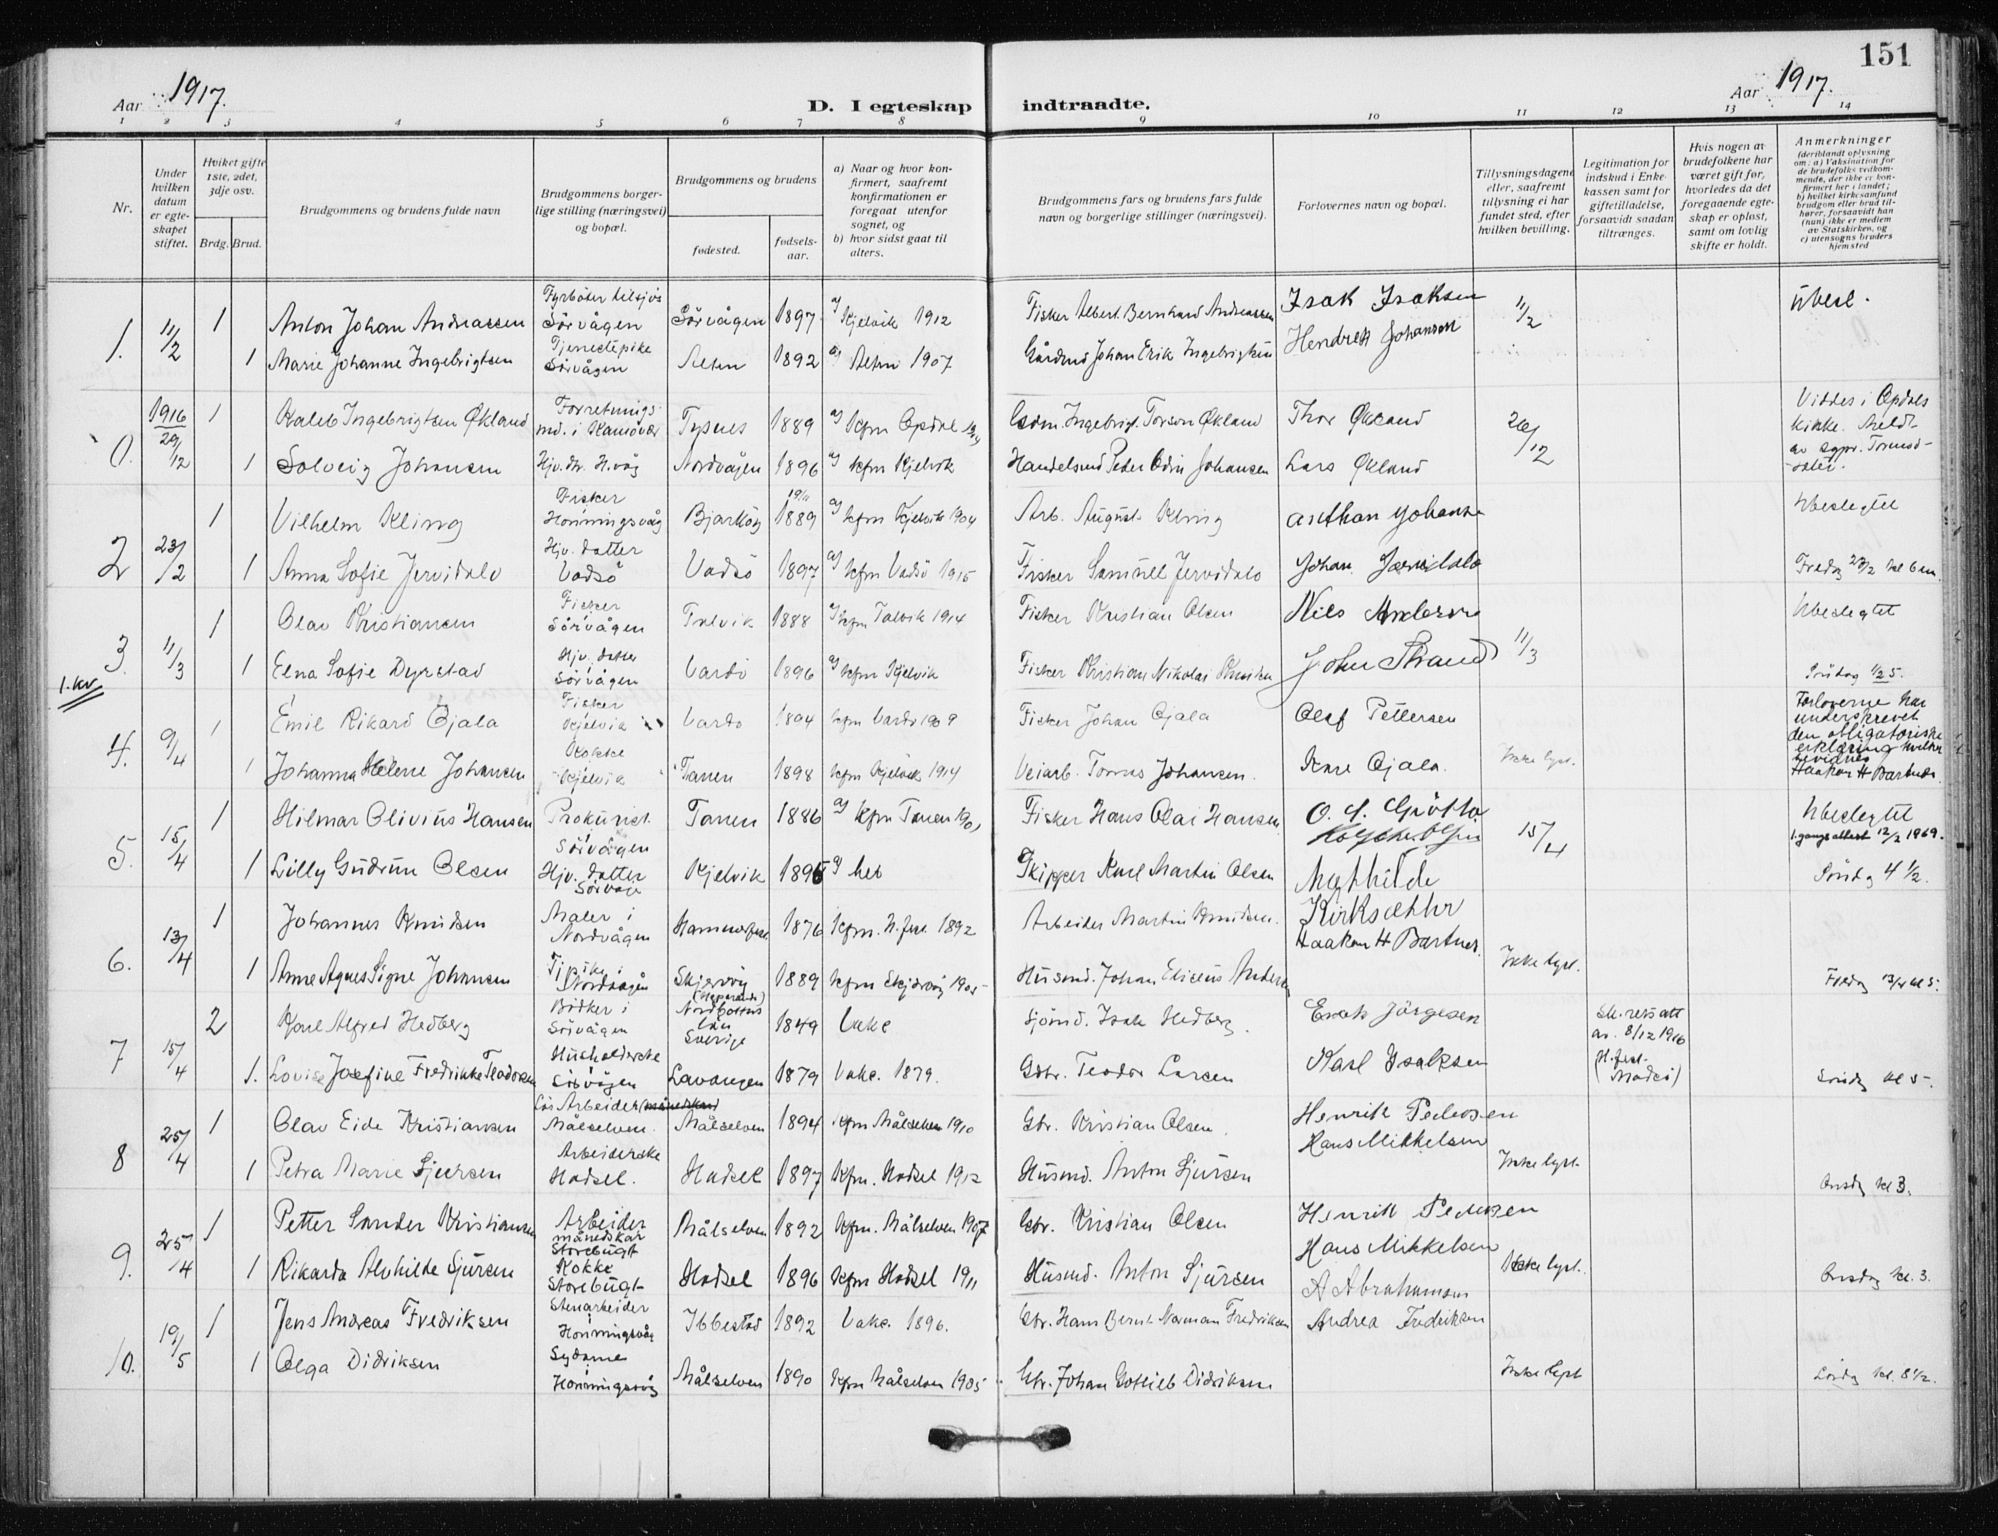 151
Aar 1917.
D. I egteskap indtraadte.
Aar 1917.
1 2 3 4 5 6 7 8 9 10 11 12 13 14
Nr.
Under hvilken datum er egteskapet stiftet.
Hvilket gifte 1ste, 2det, 3dje osv.
Brdg. Brud.
Brudgommens og brudens fulde navn
Brudgommens borgerlige stilling (næringsvei) og bopæl.
Brudgommens og brudens
fødested.
fødselsaar.
a) Naar og hvor konfirmert, saafremt konfirmationen er foregaat utenfor sognet, og
b) hvor sidst gaat til alters.
Brudgommens fars og brudens fars fulde navn og borgerlige stillinger (næringsvei).
Forlovernes navn og bopæl.
Tillysningsdagene eller, saafremt tillysning ei har fundet sted, efter hvilken bevilling.
Legitimation for indskud i Enkekassen samt for giftetilladelse, forsaavidt saadan tiltrænges.
Hvis nogen av brudefolkene har været gift før, hvorledes da det foregaaende egteskap er opløst, samt om lovlig skifte er holdt.
Anmerkninger
(deriblandt oplysning om: a) Vaksination for de brudefolks vedkommende, der ikke er konfirmert her i landet; b) hvilket kirkesamfund brudgom eller brud tilhører, forsaavidt han (hun) ikke er medlem av Statskirken, og c) utensogns bruders hjemsted
1. 11/2 1 Anton Johan Andreassen Fyrbøter tilsjøs Sörvågen Sörvågen 1897 a) Kjelvik 1912 Fisker Albert Bernhard Andreassen Isak Isaksen 11/2 Ubesl.
1 Marie Johanne Ingebrigtsen Tjenestepike Sörvågen Alten 1892 a) Alten 1907 Gårdmd Johan Erik Ingebrigtsen Hendrek Johansen
0. 1916 29/12 1 Kaleb Ingebrigtsen Økland Forretnings md. i Kamøvær Tysnes 1889 a) Kfm Opdal Ingebrigt Torson Økland Thor Økland 26/12 Viddes i Opdals kirke.
1 Solveig Johansen Hjv. dtr. H.våg Nordvågen 1896 a) Kfm Kjelvik Handelsmd Peder Odin Johansen Lars Økland
2 23/2 1 Vilhelm Kling Fisker Honningsvåg Bjarköy 19/11 1889 a) Kfm Kjelvik 1904 Arb. August Kling Ubeslegtet
1 Anna Sofie Jervidalo Hjv. datter Vadsö Vadsö 1897 a) Kfm Vadsö 1915 Fisker Samuel Jervidalo Johan Jervidalo Fredag 23/2 kl 6 em.
3. 11/3 1 Olav Kristiansen Fisker Sörvågen Talvik 1888 a) Kfm Talvik 1914 Fisker Kristian Olsen Nils 11/3 Ubeslegtet
1 Elna Sofie Dyrstad Hjv. datter Sörvågen Vardö 1896 a) Kfm Kjelvik Fisker Kristian Nikolai John Strand Söndag
1. kv
4. 9/4 1 Emil Rikard Ojala Fisker Kjelvik Vardö 1894 Kfm Vardö 1909 Fisker Johan Ojala Olaf Pettersen Forloverne har underskrevet den obligatoriske erklæring hvilket bevidnes Haakon H Bartnes.
1 Johanna Helene Johansen Kokke Kjelvik Tanen 1898 Kfm Kjelvik 1914 Veiarb. Tomas Johansen. Ojala. Ikke lyst.
5. 15/4 1 Hilmar Olivius Hansen Prokurist. Sörvågen Tanen 1886 a) Kfm Tanen Fisker Hans Olai Hansen 15/4 Ubeslegtet 1. gangs attest 12/2 1969.
1 Lilly Gudrun Olsen Hjv. datter Kjelvik a) her Skipper Karl Martin Olsen Söndag 4 1/2.
6. 13/4 1 Johannes Knudsen Maler i Nordvågen 1876 Kfm. H.fest 1892 Arbeider Martin Knudsen. Mathilde Kirksæther Haakon H Bartnes.
1 Anne Agnes Signe Johansen Nordvågen Skjervöy 1889 Kfm Skjervöy 1905 Husmd. Johan Eliseus Ikke lyst. Fredag 13/4 kl 5.
7 15/4 2 Karl Alfred Hedberg Bödker i Sörvågen (Haparanda) Nordbottens län Sverige 1849 Vakc Sjömd. Isak Hedberg. Jörgesen Sk.rets att av. 8/12 1916
1. Lovise Josefine Fredrikke Teodorsen Husholderske Sörvågen Lavangen 1879 Vakc. 1879. Gbr. Teodor Larsen Karl Isaksen Söndag kl 5.
8 25/4 1 Olav Eide Kristiansen Lös Arbeider Målselven. Målselven 1894 Kfm Målselven 1910 Gbr. Kristian Olsen. Henrik Pedersen
1 Petra Marie Sjursen Arbeiderske Hadsel. Hadsel 1897 Kfm. Hadsel 1912 Husmd. Anton Sjursen Hans Mikkelsen Ikke lyst. Onsdag kl 3.
9. 25/4 1 Petter Sander Kristiansen Arbeider månedskar Storebugt Målselven 1892 Kfm. Målselven 1907 Gbr. Kristian Olsen Henrik Pedersen
1 Rikarda Alvhilde Sjursen Kokke Storebugt Hadsel 1896 Kfm Hadsel 1911 Husmd. Anton Sjursen Hans Mikkelsen Ikke lyst. Onsdag kl. 3.
10. 19/5 1 Jens Andreas Fredriksen Stenarbeider Honningsvåg Ibbestad 1892 Vakc. 1896. Gbr. Hans Bernt Norman Fredriksen A Abrahamsen Andrea Fredriksen
1 Olga Didriksen Sydame i Honningsvåg Målselven 1890 Kfm Målselven 1905 Gbr. Johan Gotlieb Didriksen Ikke lyst Lördag kl. 8 1/2.